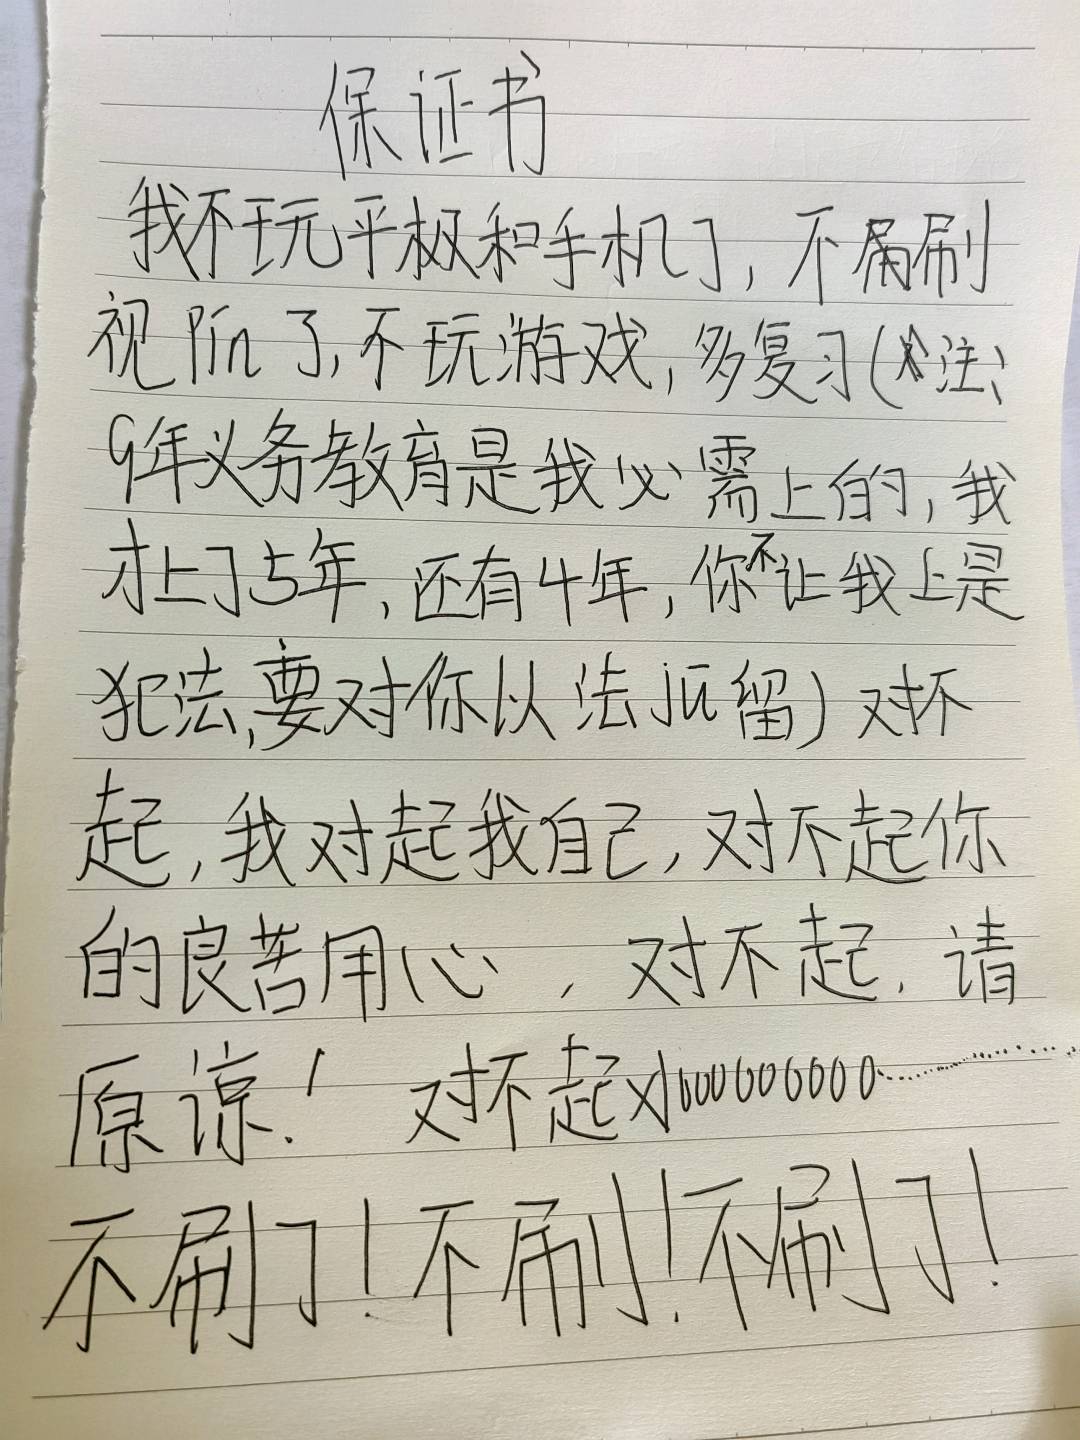 保证书
我不玩平极和手机了，不刷
视pin了，不玩游戏，多复习(注：
9年义务教育是我必需上的，我
才上了5年，还有4年，你不让我上是
犯法，要对你以法jū留)对不
起，我对起我自己，对不起你
的良苦用心，对不起.请
原谅！对不起x1000000000......
不刷了！不刷了！不刷了！